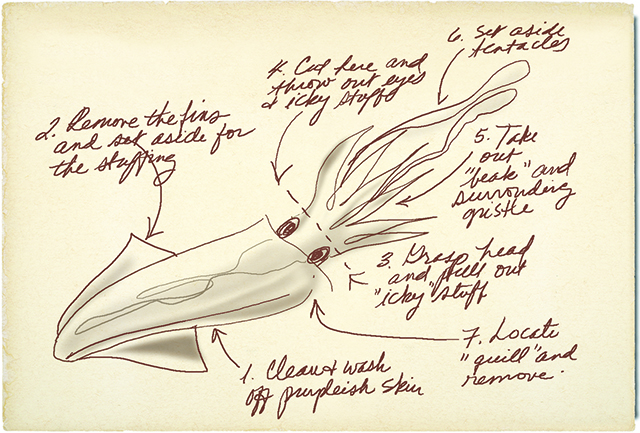 1. Clean & wash
off purpleish skin
2. Remove the fins
and set aside for
the stuffing
3. Grasp head
and pull out
"icky" stuff
4. Cut here and
throw out eyes
& icky stuff
5. Take
out
"beak" and
surrounding
gristle
6. Set aside
tentacles
7. Locate
"quill" and
remove.